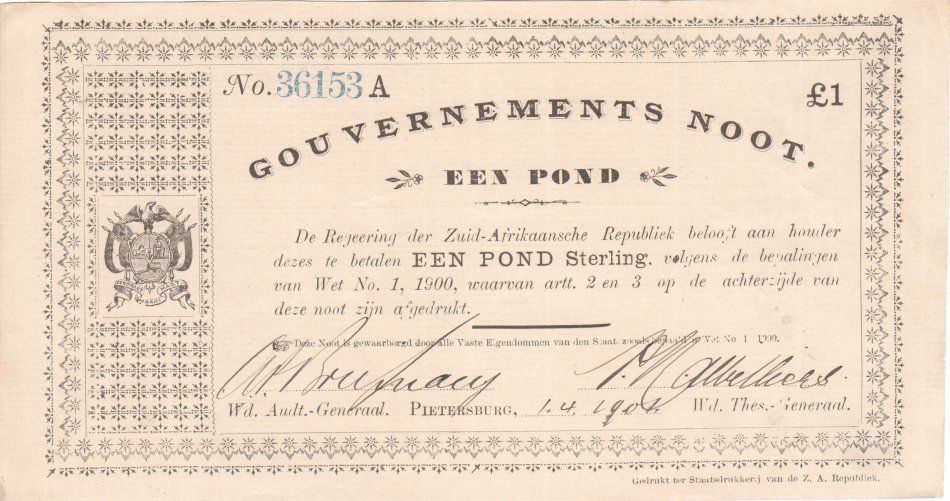 No. 36153 A £1
GOUVERNEMENTS NOOT.
EEN POND
De Regeering der Zuid-Afrikaansche Republiek belooft aan houder
dezes te betalen EEN POND Sterling. volgens de bepalingen
van Wet No. 1, 1900, waarvan artt. 2 en 3 op de achterzijde van
deze noot zijn afgedrukt.
Deze Noot is gewaarborgd door alle Vaste Eigendommen van den Staat. zooals bepaald in Wet No 1 1900.
Wd. Audt.-Generaal. PIETERSBURG, 1.4.1901. Wd. Thes.-Generaal.
Gedrukt ter Staatsdrukkerij van de Z. A. Republiek.